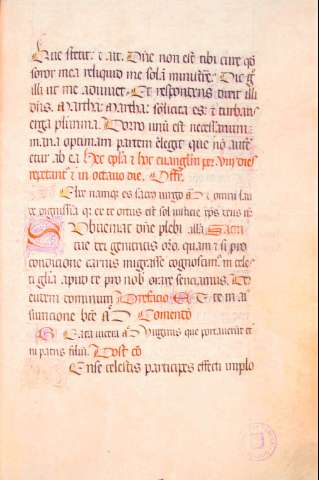 que stetit: et ait. Dñe non est tibi cure qd
soror mea reliquid me solã ministrare: Dic g̃
illi ut me adiuvet. Et respondens dixit illi
dñs. Martha: Martha: solicita es: et turbaris
erga plurima. Porro unũ est necessarium.
maria optimam partem elegit que nõ aufe
retur ab ea. Hec epła et hoc euangliũ per viii dies
repetant et in octavo die. Offr.
Felix namqꝫ es sacra uirgo M. et omni lau
de dignissima qꝫ ex te ortus est sol iusticie xp̃s deus nr̃
Subueniat dñe plebi Sacra
tue dei genitricis orõ. quam et si pro
condicione carnis migrasse cognoscim9 in celes
ti glia apud te pro nob orare senciamus. Per
eundem dominum Prefacio Et te in as
sumcione bte M Comunio
Beata uicera M Virginis que portauerũt et
ni patris filiũ. Post cõ
Ense celestis participes effecti implo